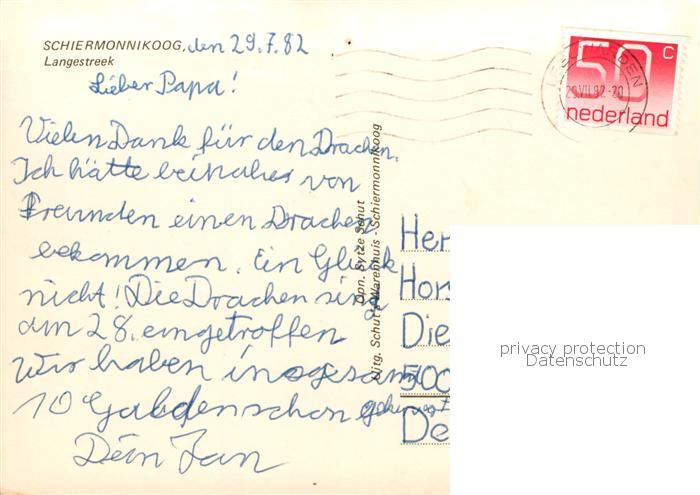 SCHIERMONNIKOOG, den 29.7.82
Langestreek
Lieber Papa!
Vielen Dank für den Drachen.
Ich hätte beinahes von
Freunden einen Drachen
bekommen. Ein Glück
nicht! Die Drachen sind
am 28. eingetroffen
Wir haben insgesamt
10 Gulden schon
Dein Jan
Opn. Sytze Schut
Uitg. Schut's Warenhuis - Schiermonnikoog
50 C
nederland
29.VII.82-20
Her
Hor
Die
500
De
privacy protection
Datenschutz